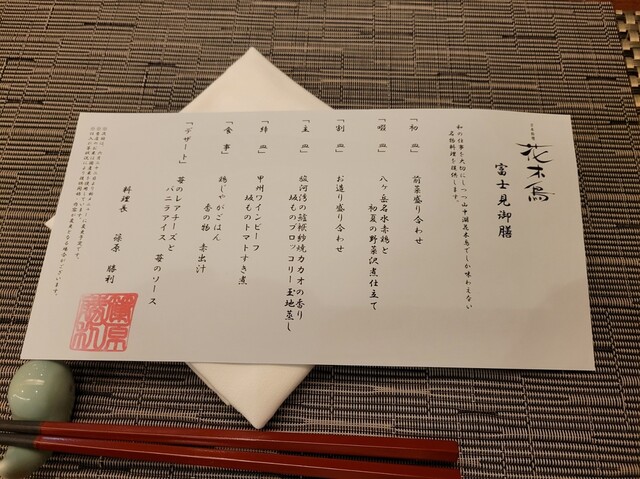 花木鳥
富士見御膳
和の仕事を大切にしつつ山中湖花木鳥でしか味わえない
名物料理を提供します。
「初 皿」
前菜盛り合わせ
「椀 皿」
八ヶ岳名水赤鶏と
初夏の野菜沢煮仕立て
「割 皿」
お造り盛り合わせ
「主 皿」
駿河湾の鱸 カカオの香り
坂ものブロッコリー玉地蒸し
「絆 皿」
甲州ワインビーフ
坂ものトマトすき煮
「食 事」
鶏じゃがごはん
香の物 赤出汁
「デザート」
苺のレアチーズと
バニラアイス 苺のソース
料理長 篠原 勝利